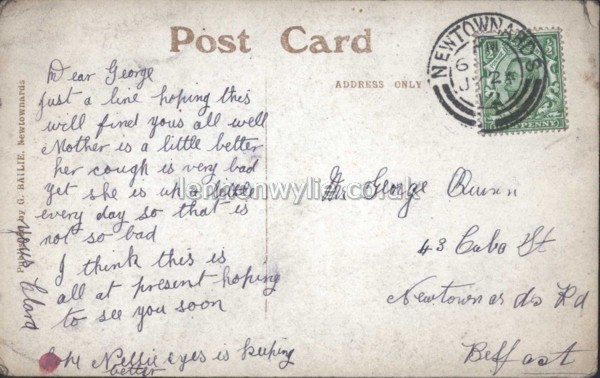 Post Card
ADDRESS ONLY
Dear George
just a line hoping this
will find yous all well
Mother is a little better
her cough is very bad
yet she is up a little
every day so that is
not so bad
I think this is
all at present hoping
to see you soon
Nellie eyes is keeping
better
Clara
by G. BAILIE, Newtownards
Mr George Quinn
43 Cuba St
Newtownards Rd
Belfast
NEWTOWNARDS
HALFPENNY
lennonwylie.co.uk